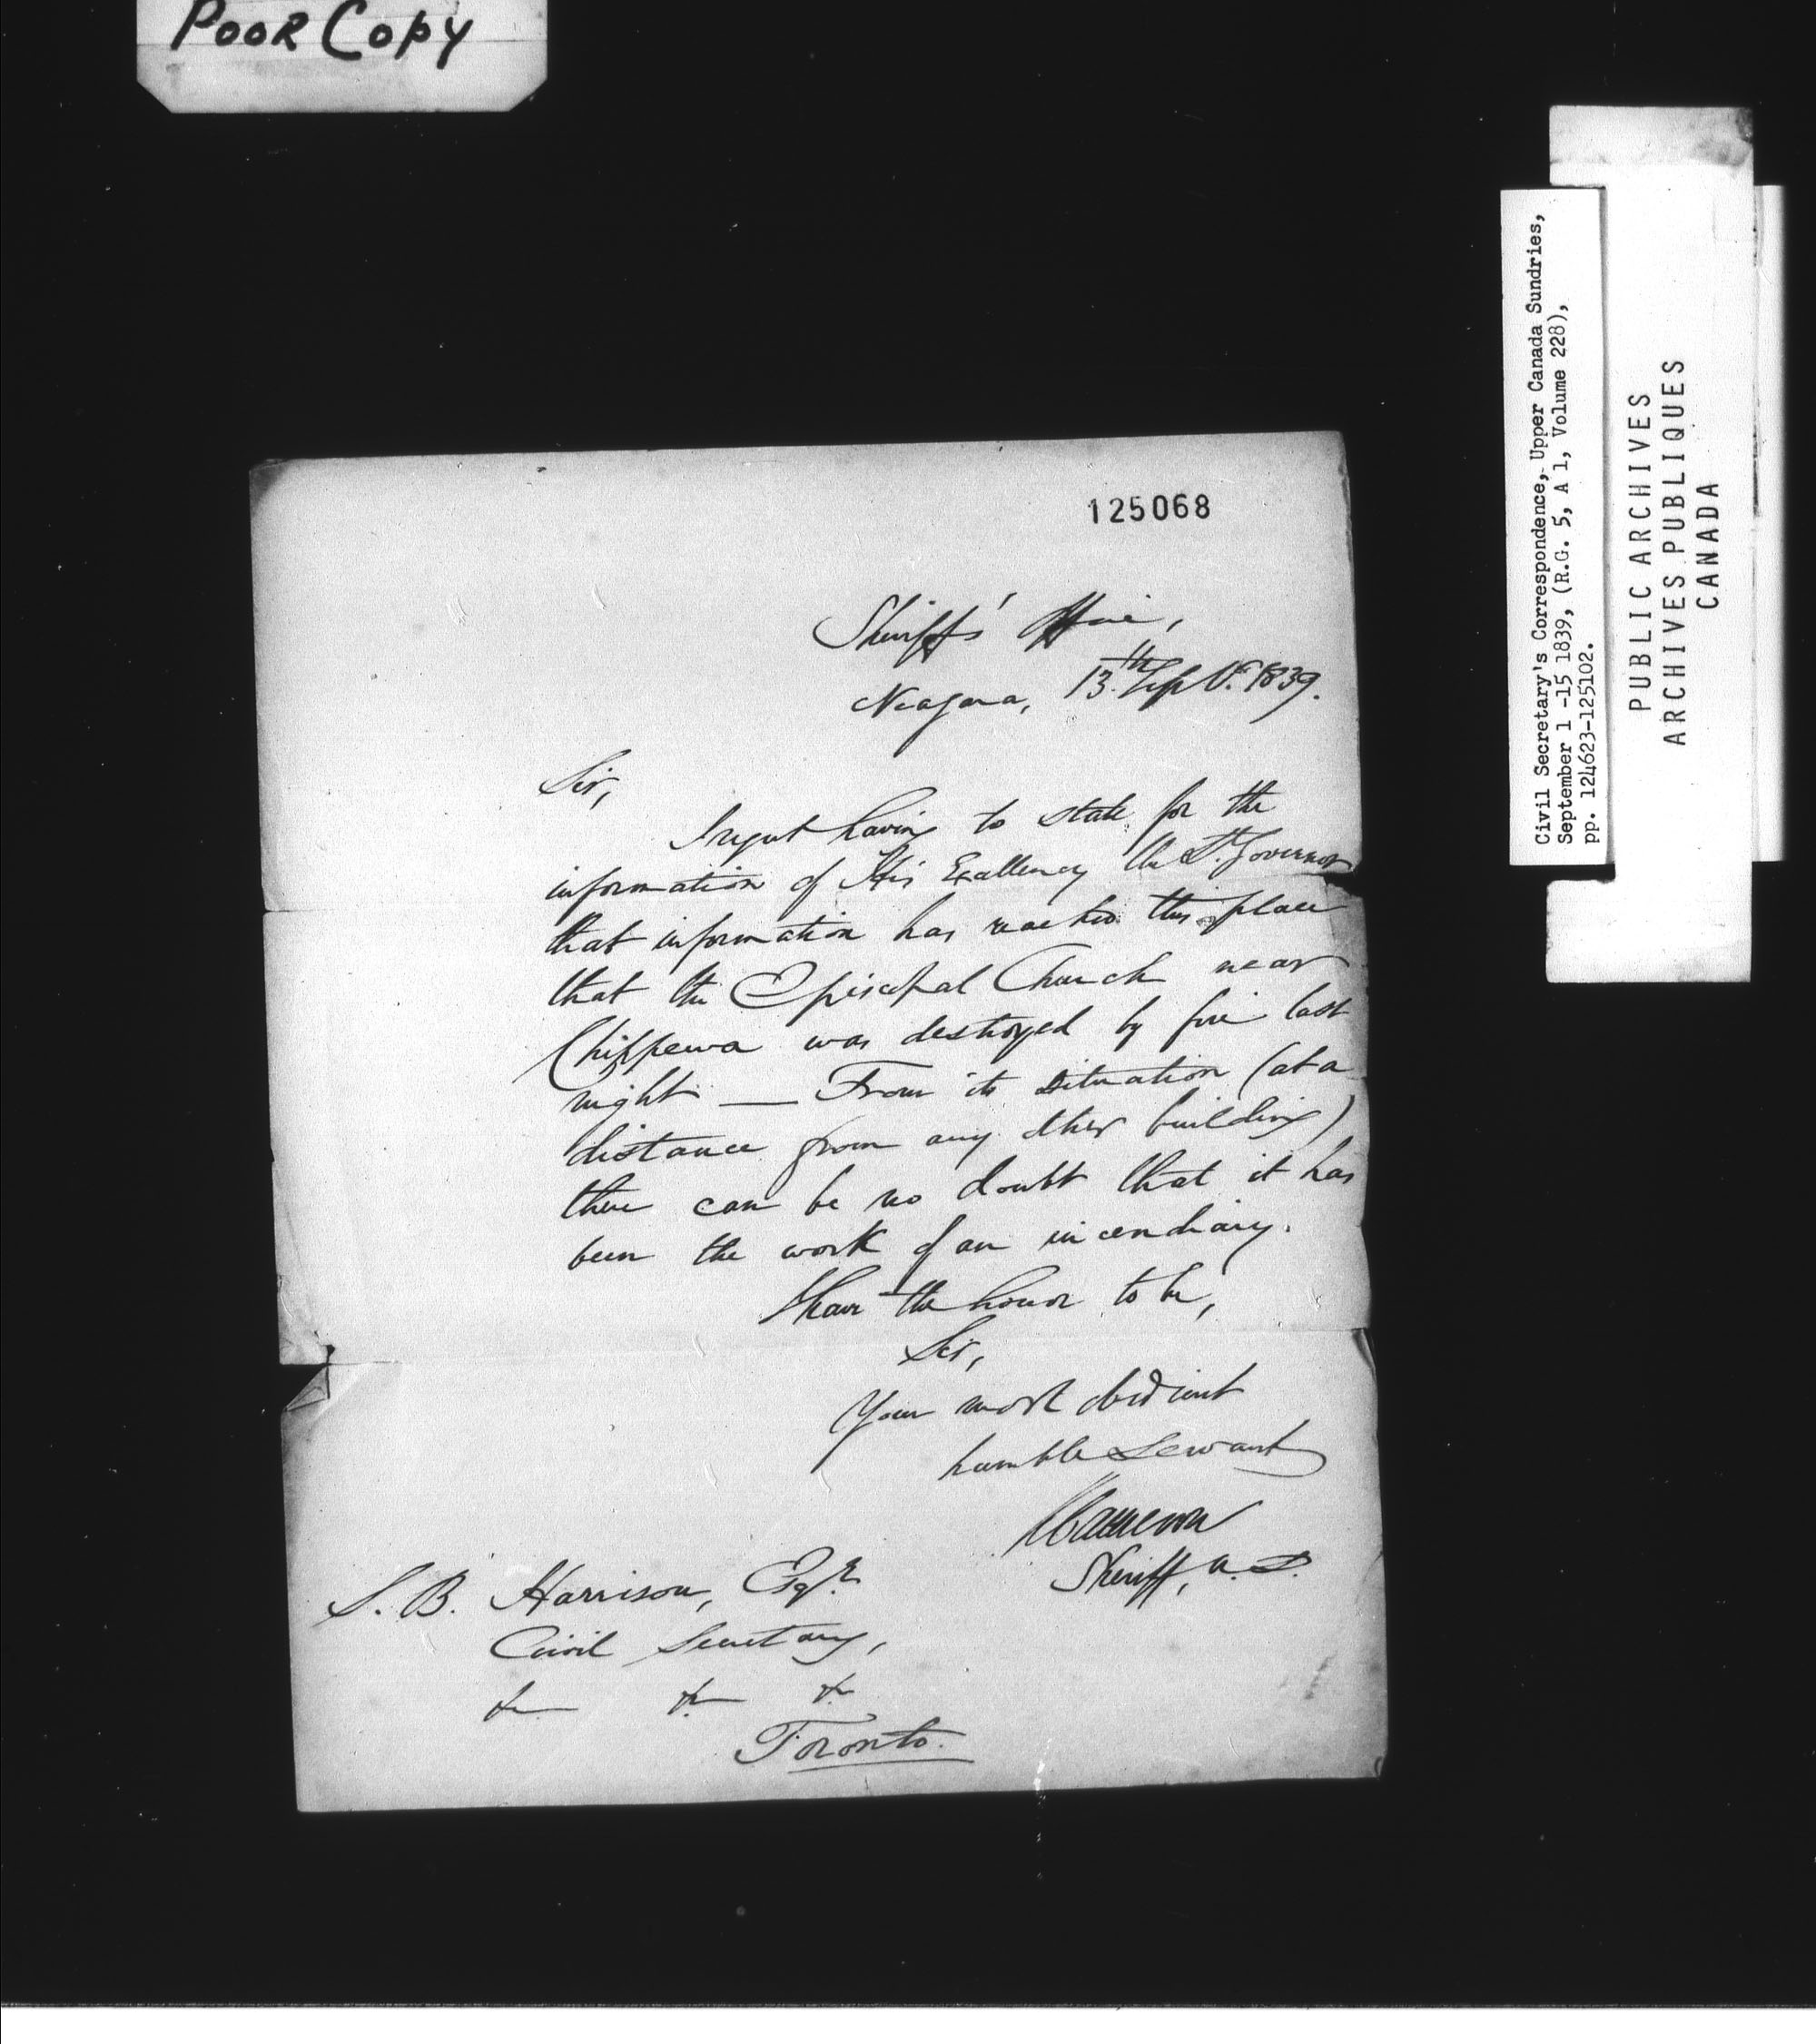 POOR COPY
125068
Sheriff's Office,
Niagara, 13.th Sept. 1839.
Sir,
I regret having to state for the
information of His Excellency the Lt. Governor
that information has reached this place
that the Episcopal Church near
Chippewa was destroyed by fire last
night — From its situation (at a
distance from any other building)
there can be no doubt that it has
been the work of an incendiary.
I have the honor to be,
Sir,
Your most obedient
humble Servant
Sheriff, N. D.
S. B. Harrison, Esqr.
Civil Secretary,
&c &c &c
Toronto.
Civil Secretary's Correspondence, Upper Canada Sundries,
September 1 -15 1839, (R.G. 5, A 1, Volume 228),
pp. 124623-125102.
PUBLIC ARCHIVES
ARCHIVES PUBLIQUES
CANADA